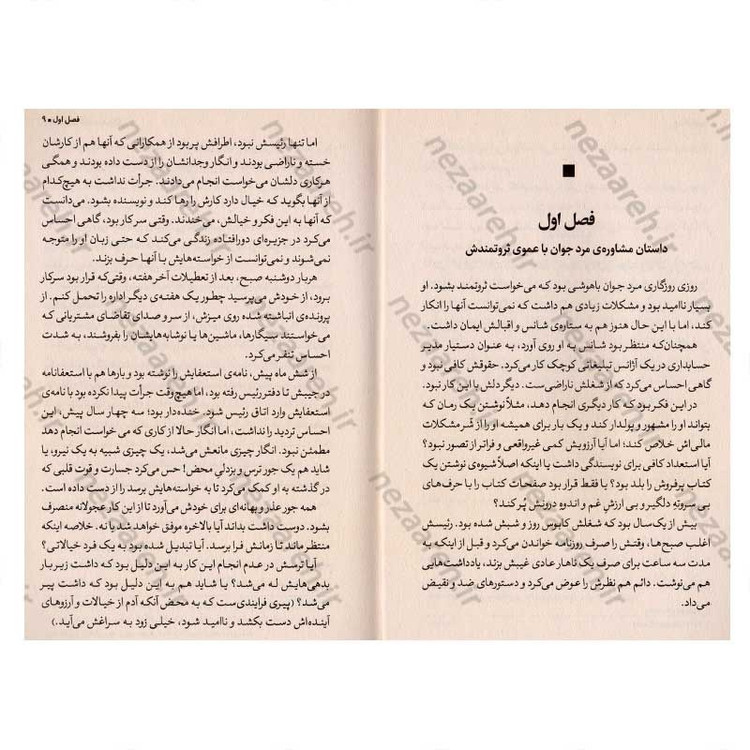 فصل اول
داستان مشاوره‌ی مرد جوان با عموی ثروتمندش
روزی روزگاری مرد جوان باهوشی بود که می‌خواست ثروتمند بشود. او
بسیار ناامید بود و مشکلات زیادی هم داشت که نمی‌توانست آنها را انکار
کند، اما با این حال هنوز هم به ستاره‌ی شانس و اقبالش ایمان داشت.
همچنان‌که منتظر بود شانس به او روی آورد، به عنوان دستیار مدیر
حسابداری در یک آژانس تبلیغاتی کوچک کار می‌کرد. حقوقش کافی نبود و
گاهی احساس می‌کرد که از شغلش ناراضی‌ست. دیگر دلش با این کار نبود.
در این فکر بود که کار دیگری انجام دهد، مثلاً نوشتن یک رمان که
بتواند او را مشهور و پولدار کند و یک بار برای همیشه او را از شر مشکلات
مالی‌اش خلاص کند؛ اما آیا آرزویش کمی غیرواقعی و فراتر از تصور نبود؟
آیا استعداد کافی برای نویسندگی داشت یا اینکه اصلاً شیوه‌ی نوشتن یک
کتاب پرفروش را بلد بود؟ یا فقط قرار بود صفحات کتاب را با حرف‌های
بی سروته دلگیر و بی ارزش غم و اندوه درونش پُر کند؟
بیش از یک‌سال بود که شغلش کابوس روز و شبش شده بود. رئیسش
اغلب صبح‌ها، وقتش را صرف روزنامه خواندن می‌کرد و قبل از اینکه به
مدت سه ساعت برای صرف یک ناهار عادی غیبش بزند، یادداشت‌هایی
هم می‌نوشت. دائم هم نظرش را عوض می‌کرد و دستورهای ضد و نقیض
می‌داد.
فصل اول ■ ۹
اما تنها رئیسش نبود، اطرافش پر بود از همکارانی که آنها هم از کارشان
خسته و ناراضی بودند و انگار وجدانشان را از دست داده بودند و همگی
هرکاری دلشان می‌خواست انجام می‌دادند. جرأت نداشت به هیچ‌کدام
از آنها بگوید که خیال دارد کارش را رها کند و نویسنده بشود. می‌دانست
که آنها به این فکر و خیالش، می‌خندند. وقتی سر کار بود، گاهی احساس
می‌کرد در جزیره‌ای دورافتاده زندگی می‌کند که حتی زبان او را متوجه
نمی‌شوند و نمی‌توانست از خواسته‌هایش با آنها حرف بزند.
هربار دوشنبه صبح، بعد از تعطیلات آخر هفته، وقتی‌که قرار بود سرکار
برود، از خودش می‌پرسید چطور یک هفته‌ی دیگر اداره را تحمل کنم. از
پرونده‌ی انباشته شده‌ی روی میزش، از سر و صدای تقاضای مشتریانی که
می‌خواستند سیگارها، ماشین‌ها یا نوشابه‌هایشان را بفروشند، به شدت
احساس تنفر می‌کرد.
از شش ماه پیش، نامه‌ی استعفایش را نوشته بود و بارها هم با استعفانامه
در جیبش تا دفتر رئیس رفته بود، اما هیچ‌وقت جرأت پیدا نکرده بود با نامه‌ی
استعفایش وارد اتاق رئیس شود. خنده‌دار بود؛ سه چهار سال پیش، این
احساس تردید را نداشت، اما انگار حالا از کاری که می‌خواست انجام دهد
مطمئن نبود. انگار چیزی مانعش می‌شد، یک چیزی شبیه به یک نیرو، یا
شاید هم یک جور ترس و بزدلی محض! حس می‌کرد جسارت و قوت قلبی که
در گذشته به او کمک می‌کرد تا به خواسته‌هایش برسد را از دست داده است.
همه جور عذر و بهانه‌ای برای خودش می‌آورد تا از این کار عجولانه منصرف
بشود. دوست داشت بداند آیا بالاخره موفق خواهد شد یا نه. خلاصه اینکه
منتظر ماند تا زمانش فرا برسد. آیا تبدیل شده بود به یک فرد خیالاتی؟
آیا ترسش در عدم انجام این کار به این دلیل بود که داشت زیر بار
بدهی‌هایش له می‌شد؟ یا شاید هم به این دلیل بود که داشت پیر
می‌شد؟ (پیری فرایندی‌ست که به محض آنکه آدم از خیالات و آرزوهای
آینده‌اش دست بکشد و ناامید شود، خیلی زود به سراغش می‌آید.)
nezaareh.ir